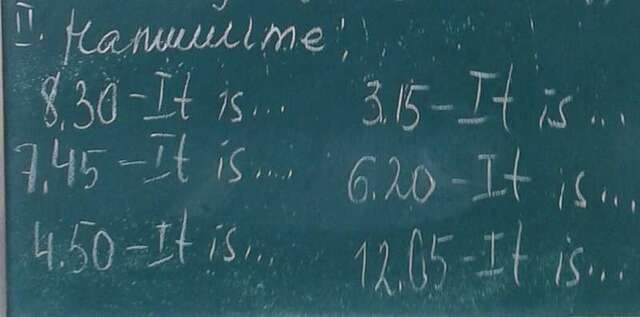 II. Напишите:
8.30 – It is... 3.15 – It is...
7.45 – It is.... 6.20 – It is...
4.50 – It is... 12.05 – It is...